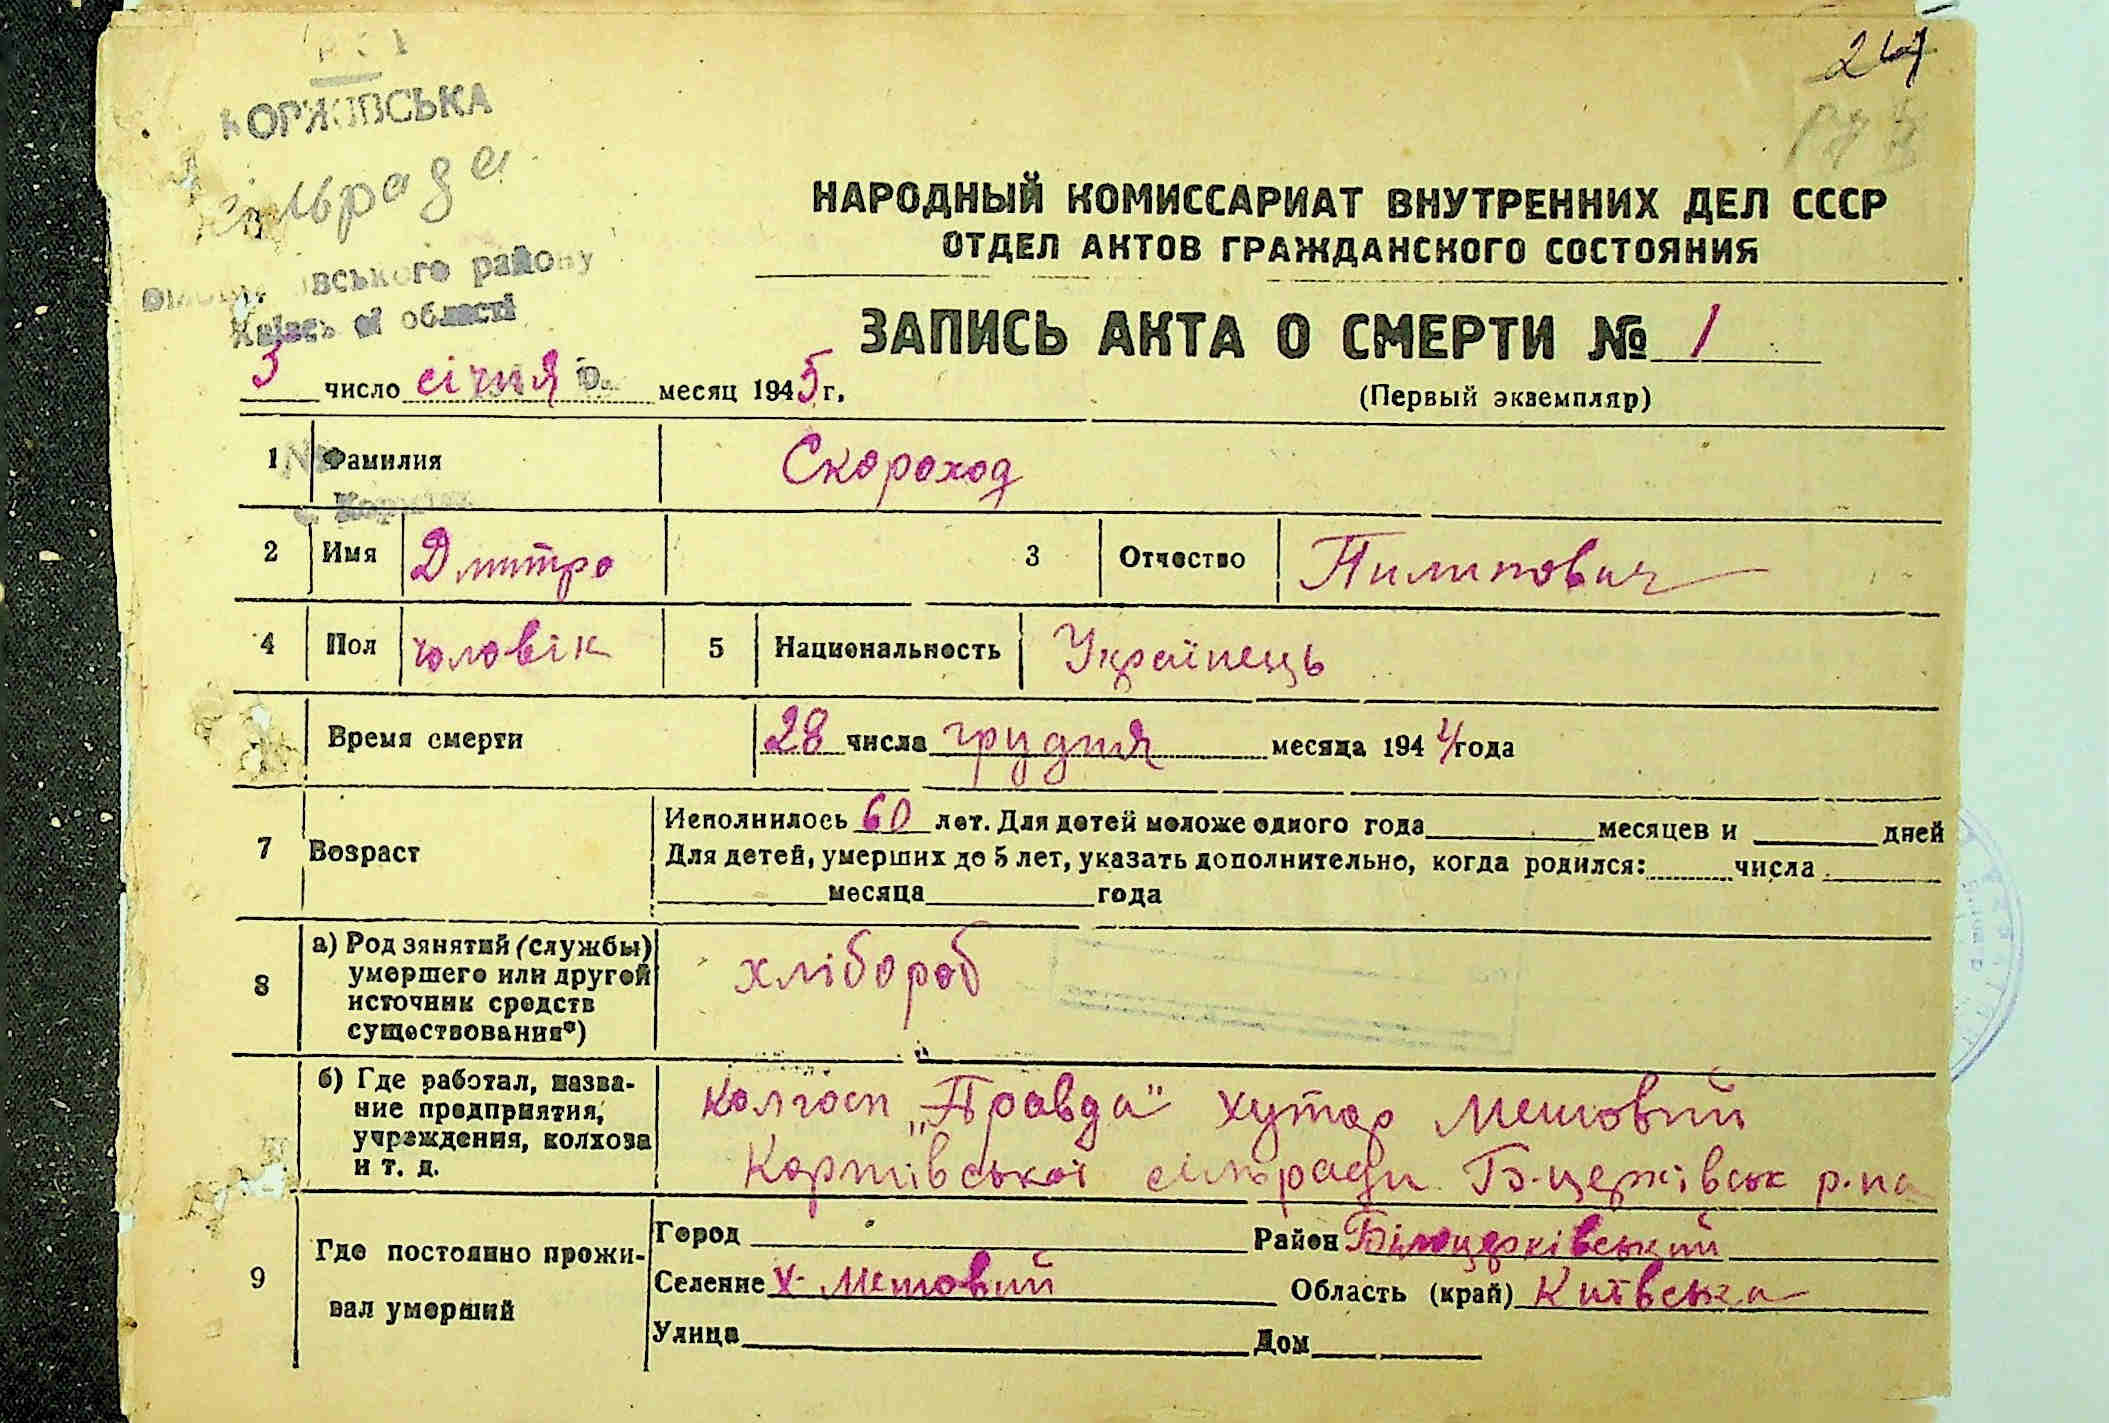 24
КОРЖІВСЬКА
сільрада
івського району
Київської області
3 число січня месяц 1945 г.
НАРОДНЫЙ КОМИССАРИАТ ВНУТРЕННИХ ДЕЛ СССР
ОТДЕЛ АКТОВ ГРАЖДАНСКОГО СОСТОЯНИЯ
ЗАПИСЬ АКТА О СМЕРТИ № 1
(Первый экземпляр)
1 Фамилия Скороход
2 Имя Дмитро 3 Отчество Пилипович
4 Пол чоловік 5 Национальность Українець
Время смерти 28 числа грудня месяца 1944 года
7 Возраст Исполнилось 60 лет. Для детей моложе одного года месяцев и дней
Для детей, умерших до 5 лет, указать дополнительно, когда родился: числа
месяца года
8 а) Род занятий (службы) умершего или другой источник средств существования*) хлібороб
б) Где работал, название предприятия, учреждения, колхоза и т. д. колгосп „Правда" хутор
сільради Б-церківськ р-на
9 Где постоянно проживал умерший Город Район Білоцерківський
Селение х- Область (край) Київська
Улица Дом